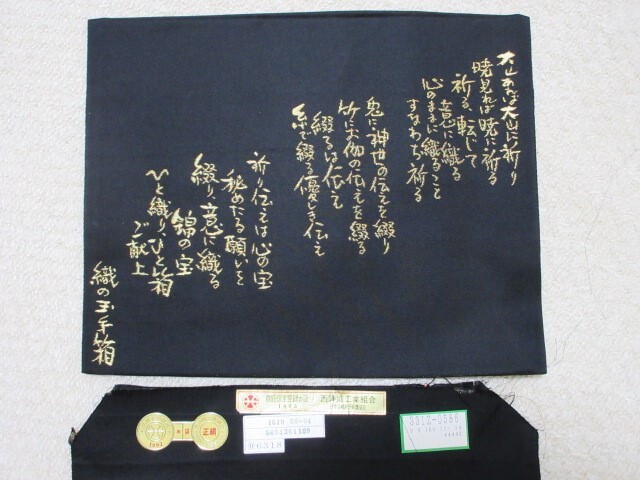 大山あれば大山に祈り
暁見れば暁に祈る
祈る、転じて
意に織る
心のままに織ること
すなわち祈る
鬼に神世の伝えを綴り
竹にお伽の伝えを綴る
綴るは伝え
糸で綴る優しき伝え
祈り伝えは心の宝
秘めたる願いを
綴り、意に織る
錦の宝
ひと織り、ひと箱
ご献上
織の玉手箱
西陣織工業組合
正絹